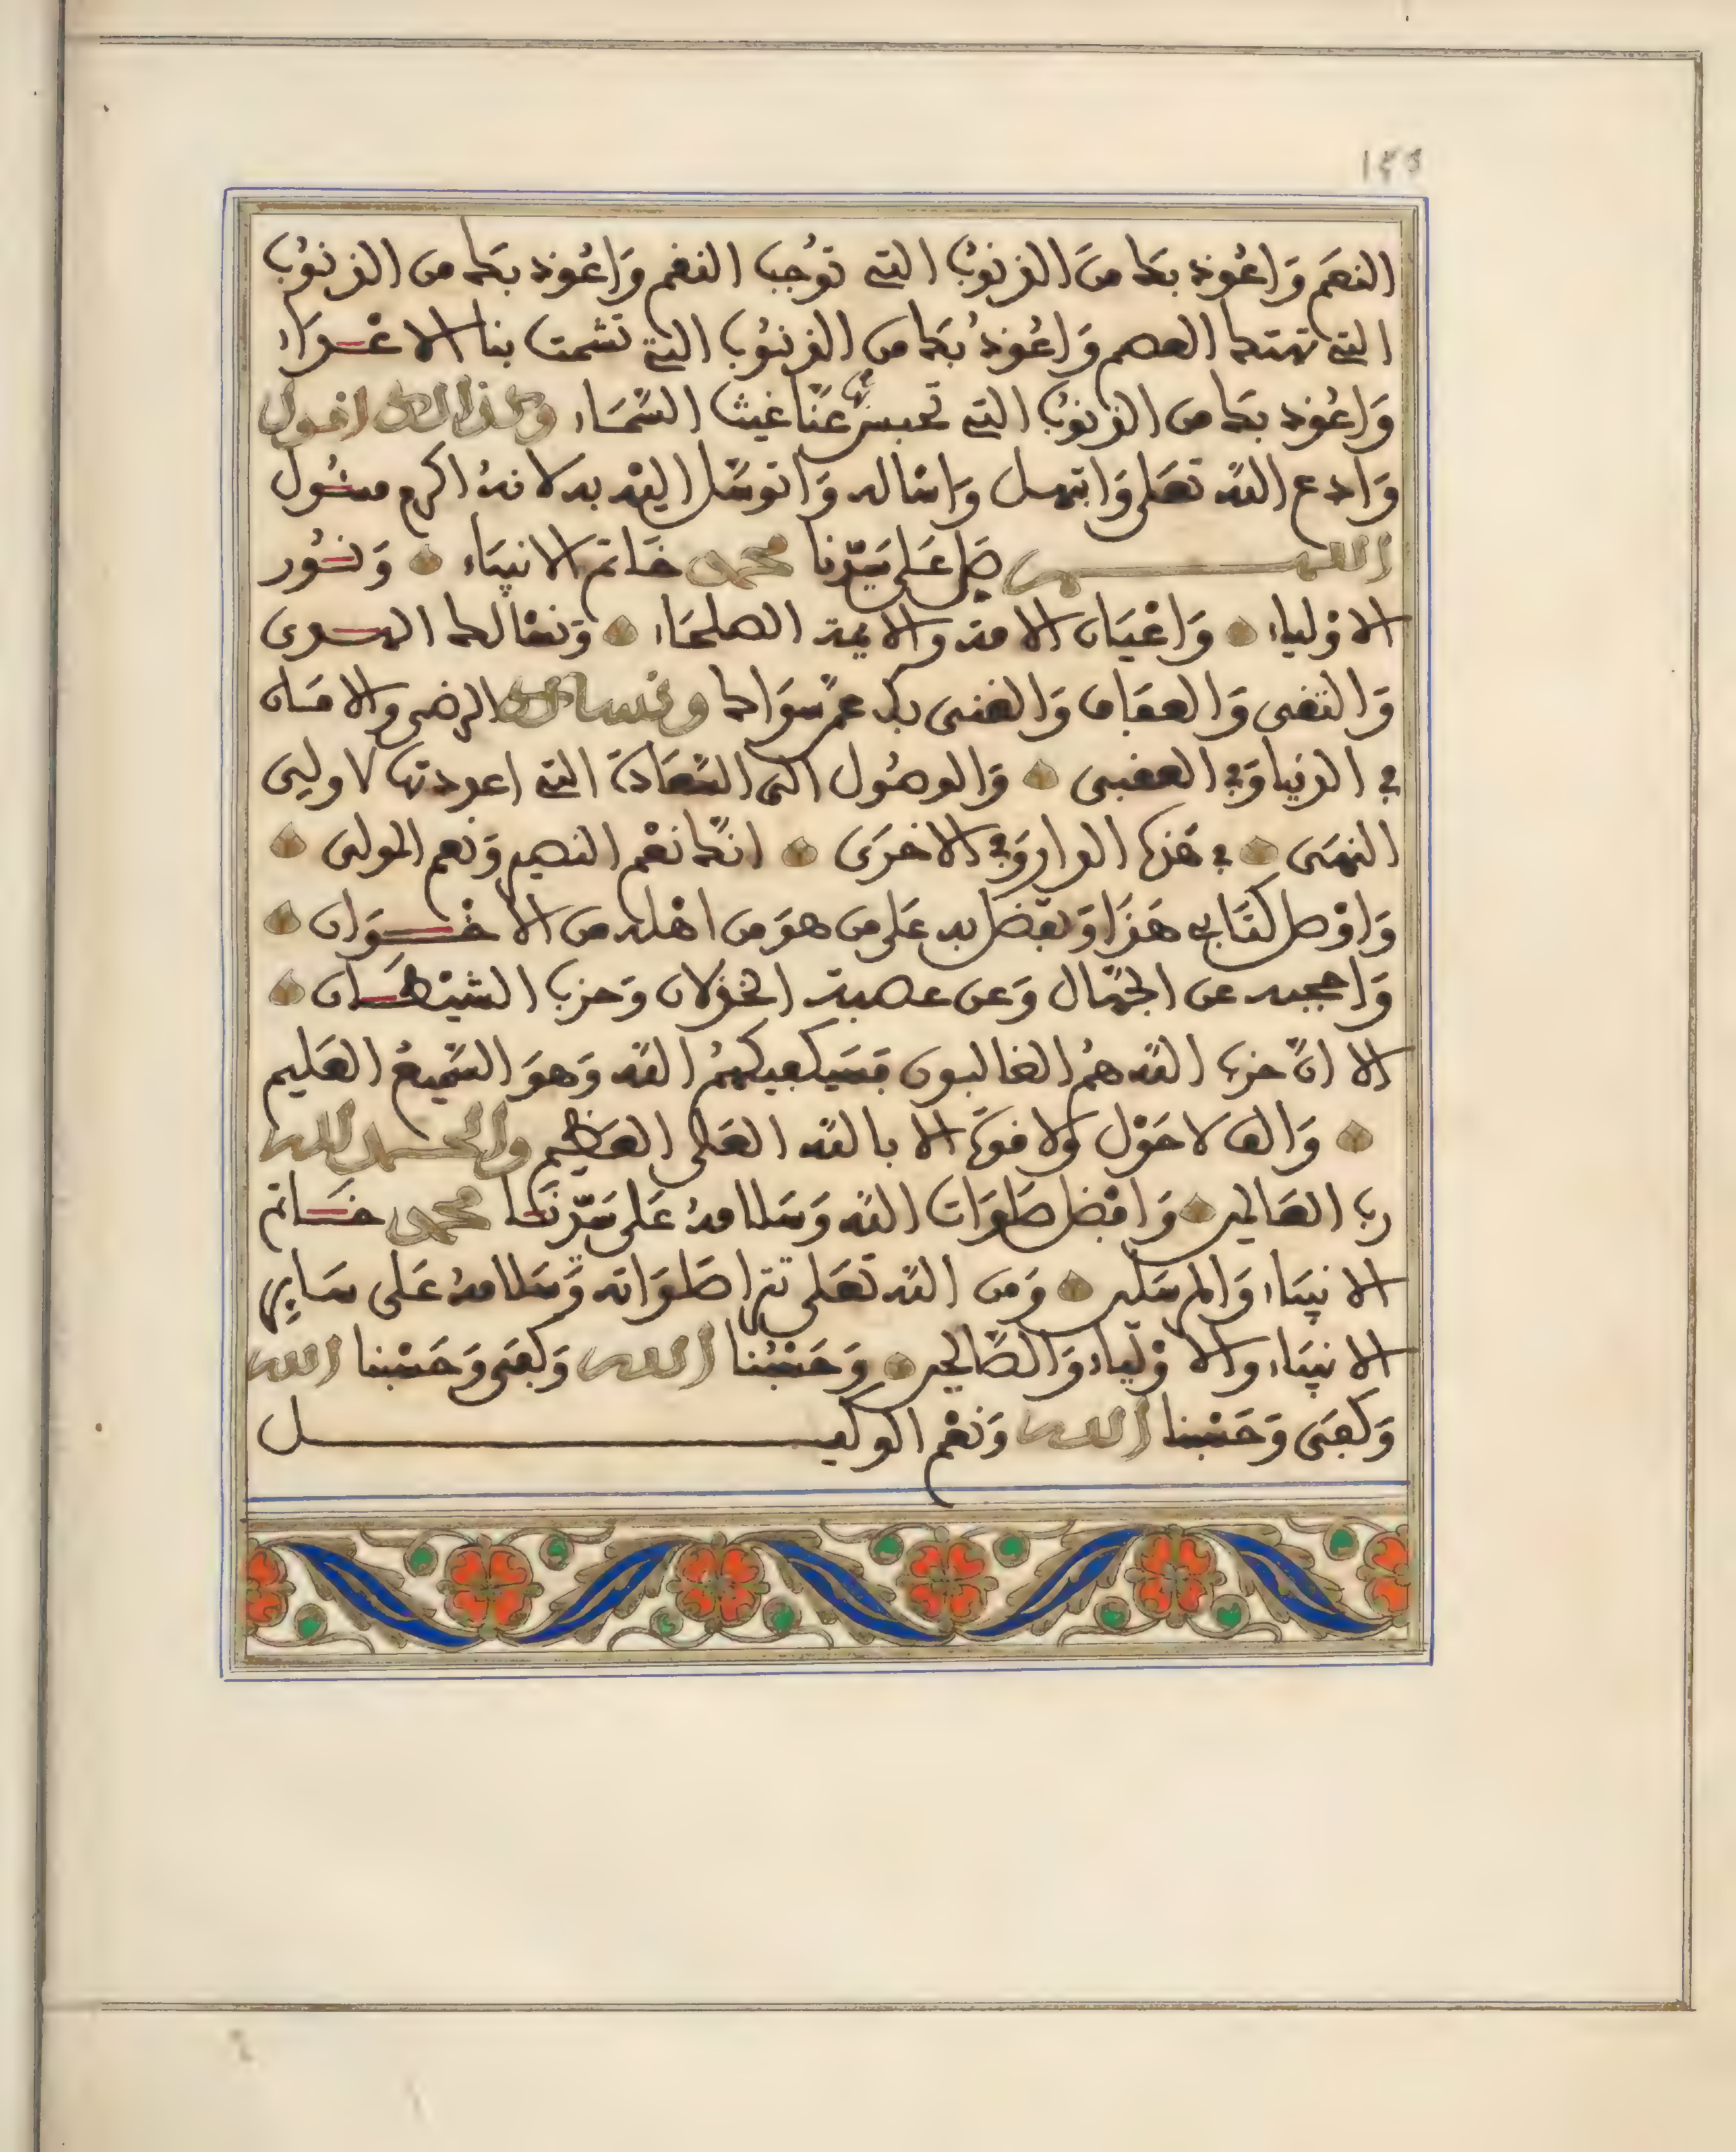 ١٤٥
النعم وَاعُوذ بكَ منَ الذنوُب التے توُجب النقم وَاعُوذ بكَ من الذنوُب
التے تهتك العصم وَاعُوذُ بكَ من الذنوُب التے تشمت بنا الاعْدَاء
وَاعُوذ بكَ من الذنوُب التے تحبس عنّا غيث السّمَاء وكذالك اقول
وَادع اللّه تعَلى وَابتهل وَاسْاله وَاتوسّل اليْه به لانهُ اكرم مسْـُول
اللهم صَل عَلى سَيّدنا محمد خَاتم الانبيَاء وَنـُور
الاوْلياء وَاعْيَان الامة والايمة الصلحَاء وَنسْالك الهدى
وَالتقى وَالعفَاف وَالغنى بك عمّن سوَاك ونسالك الرضى والامَان
في الدنيا وَفي العقبى وَالوصُول الى السّعَادة التے اعددتها لاولى
النهَى في هَذه الدار وَفي الاخرَى انّك نعْم النصير وَنعم المولى
وَاوْصل كتَابي هَذَا وَتفضل به عَلى من هوَ من اهْله من الاخْوَان
وَاحجبه عن الجهّال وَعن عصبة الخذلان وَحزب الشيْطَان
الا انّ حزب اللّه همُ الغالبون فسَيكفيكهمُ اللّه وَهوَ السّميعُ العَليم
وَالف لاحَوْل وَلا قوةَ الا باللّه العَلى العَظيم والحمد لله
رب العَالمين وَافضَل صَلوَات اللّه وَسَلامهُ عَلى سَيّدنَا محمد خَاتم
الانبيَاء وَالمرسَلين وَمن اللّه تعَلى تترا صَلوَاته وَسَلامهُ عَلى سَاير
الانبيَاء والاوْليَاء وَالصّالحين وَحَسْبُنا الله وَكفَى وَحَسْبنا الله
وَكفَى وَحَسْبنا الله وَنعْم الوكيل